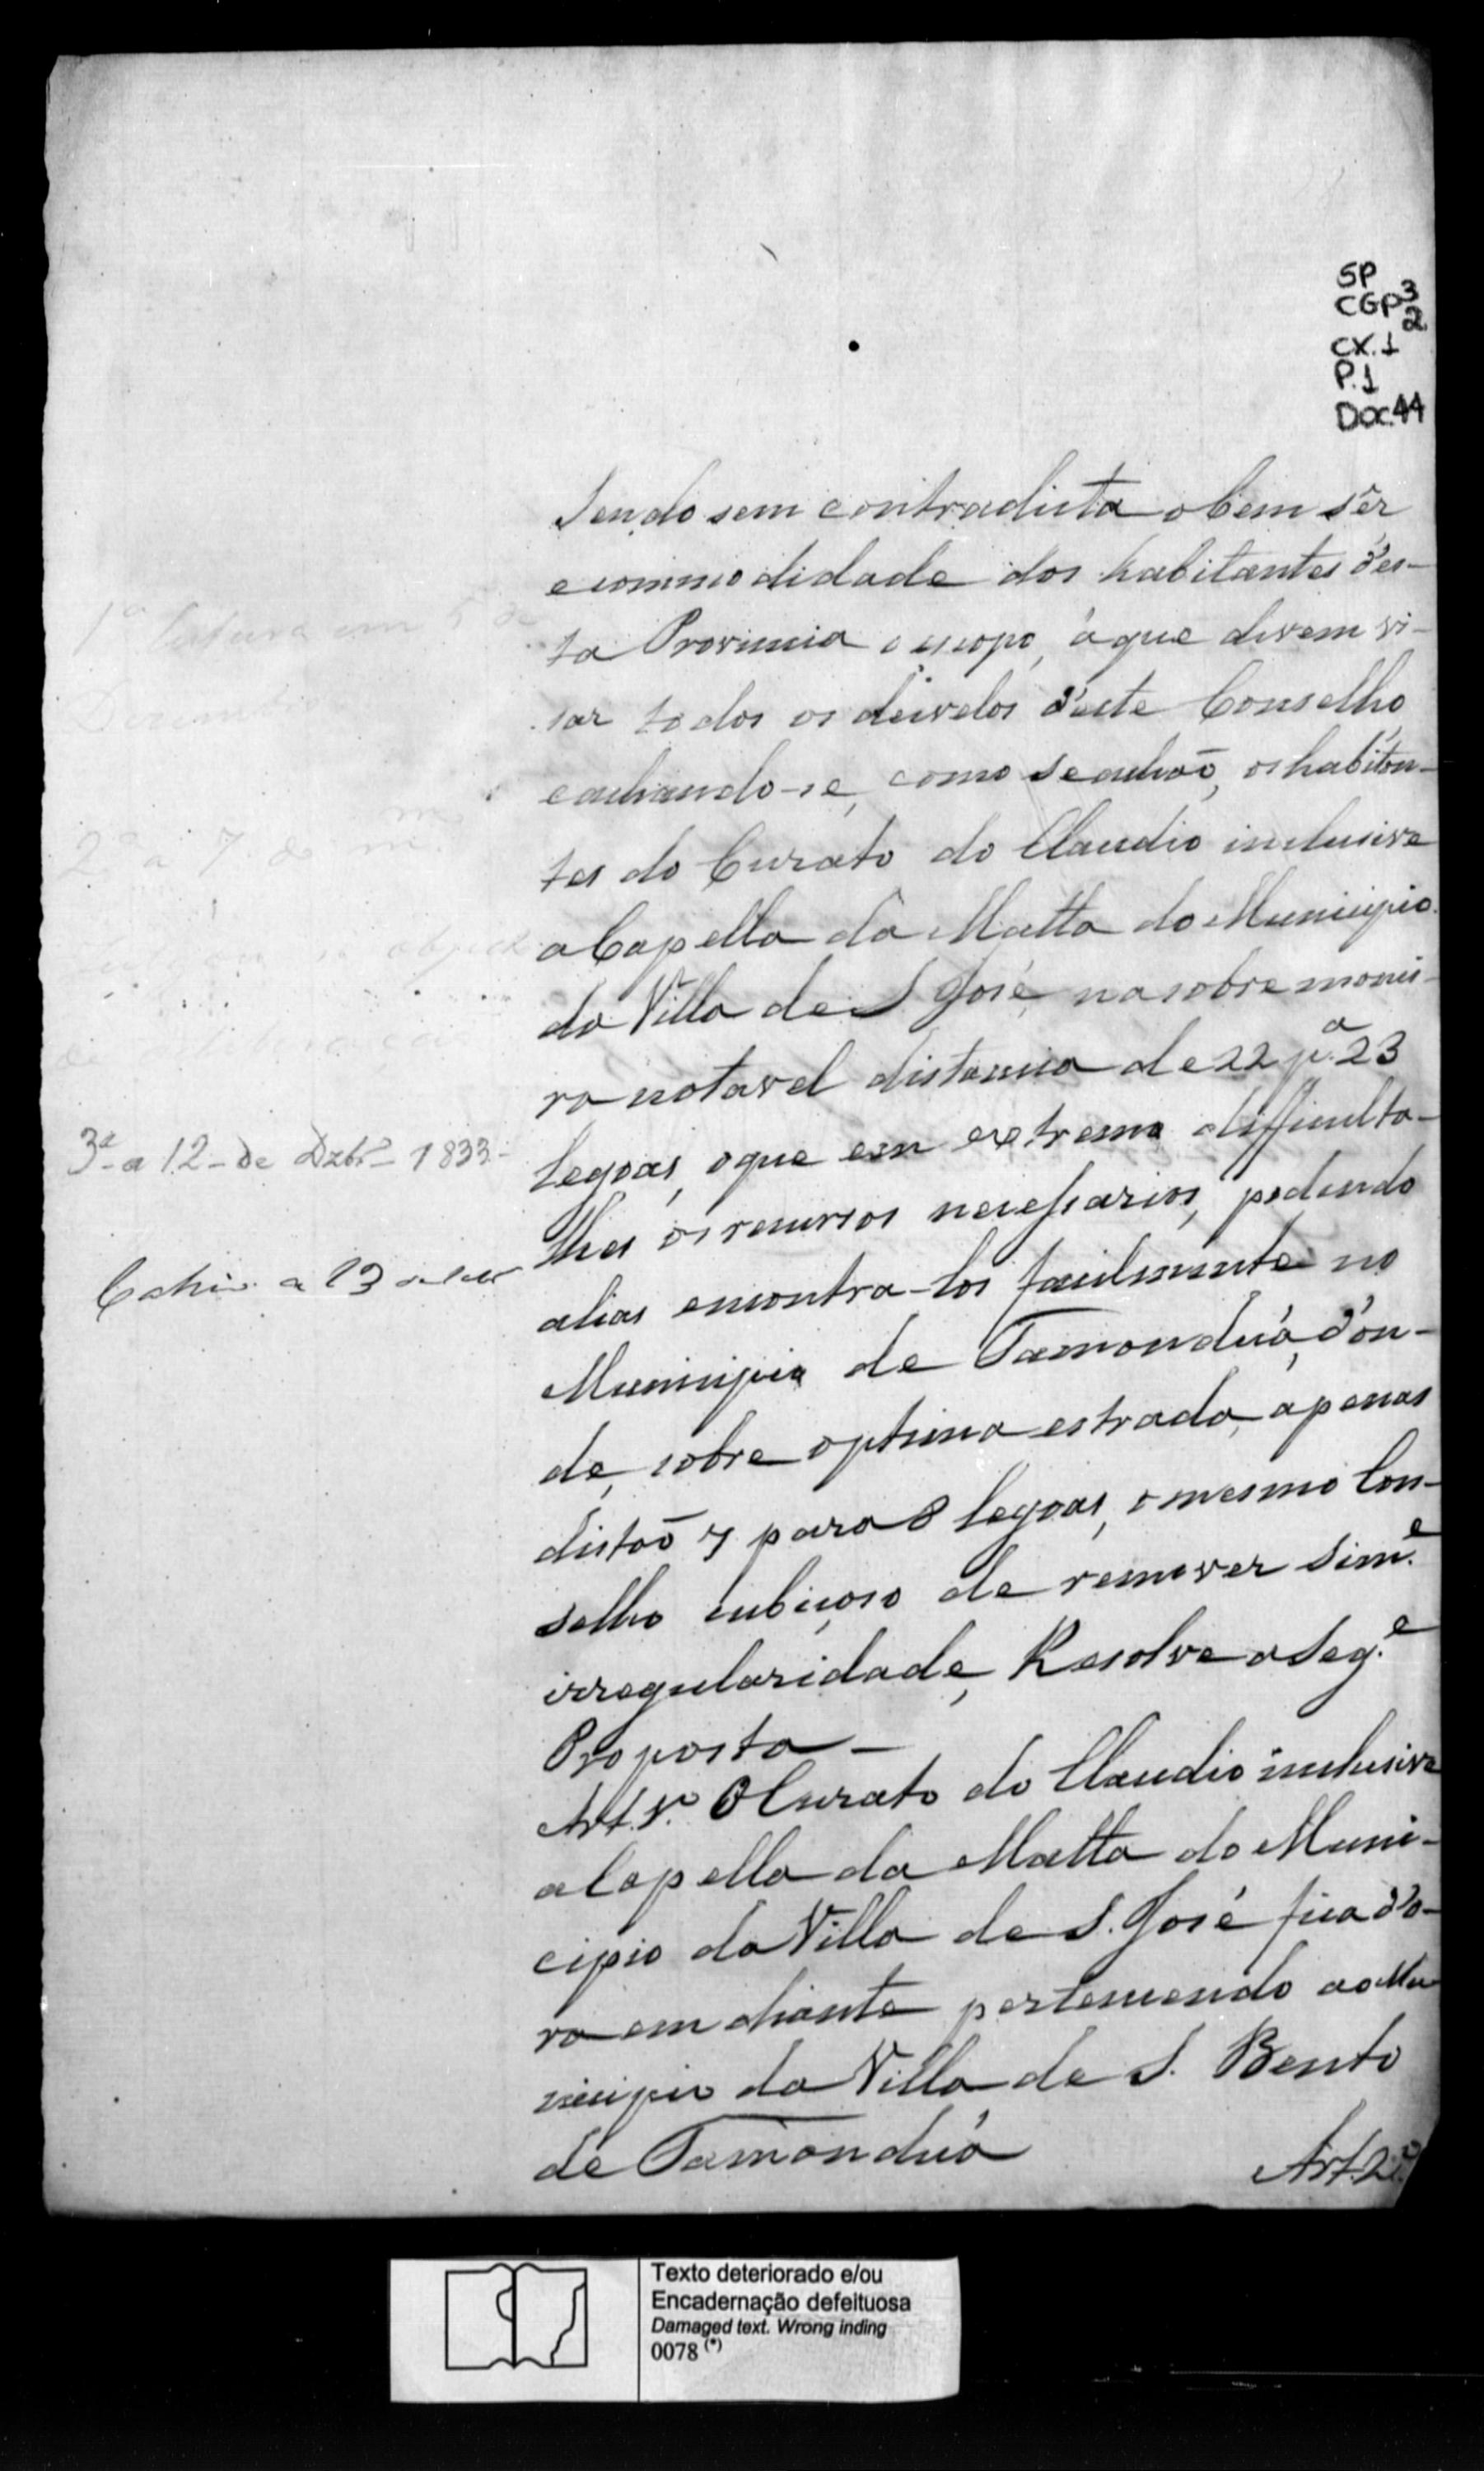 SP
CGP 3
2
CX.1
P.1
Doc.44
Sendo sem contradicta o bem ser
e commodidade dos habitantes d'es-
ta Provincia o escopo, á que devem vi-
sar todos os desvelos d'este Conselho
e achando-se, como se achaõ, os habitan-
tes do Curato do Claudio inclusive
a Capella da Matta do Municipio
da Villa de S José, na sobre manei-
ra notavel distancia de 22 p.ª 23
legoas, o que em extremo difficulta-
lhes os recursos necessarios, podendo
alias encontra-los facilmente no
Municipio de Tamonduá, d'on-
de, sobre optima estrada, apenas
distaõ 7 para 8 legoas, o mesmo Con-
selho cubiçoso de remover sim.e
irregularidade, Resolve a Seg.e
Proposta -
Art. 1.º O Curato do Claudio inclusive
a Capella da Matta do Muni-
cipio da Villa de S. José fica d'o-
ra em diante pertencendo ao Mu
nicipio da Villa de S. Bento
de Tamonduá
Art. 2.º
1ª leitura em 5 de
2ª a 7 do m.mo
3ª a 12 de Dzbrº 1833
Cahio a 13
Texto deteriorado e/ou
Encadernação defeituosa
Damaged text. Wrong inding
0078 (*)